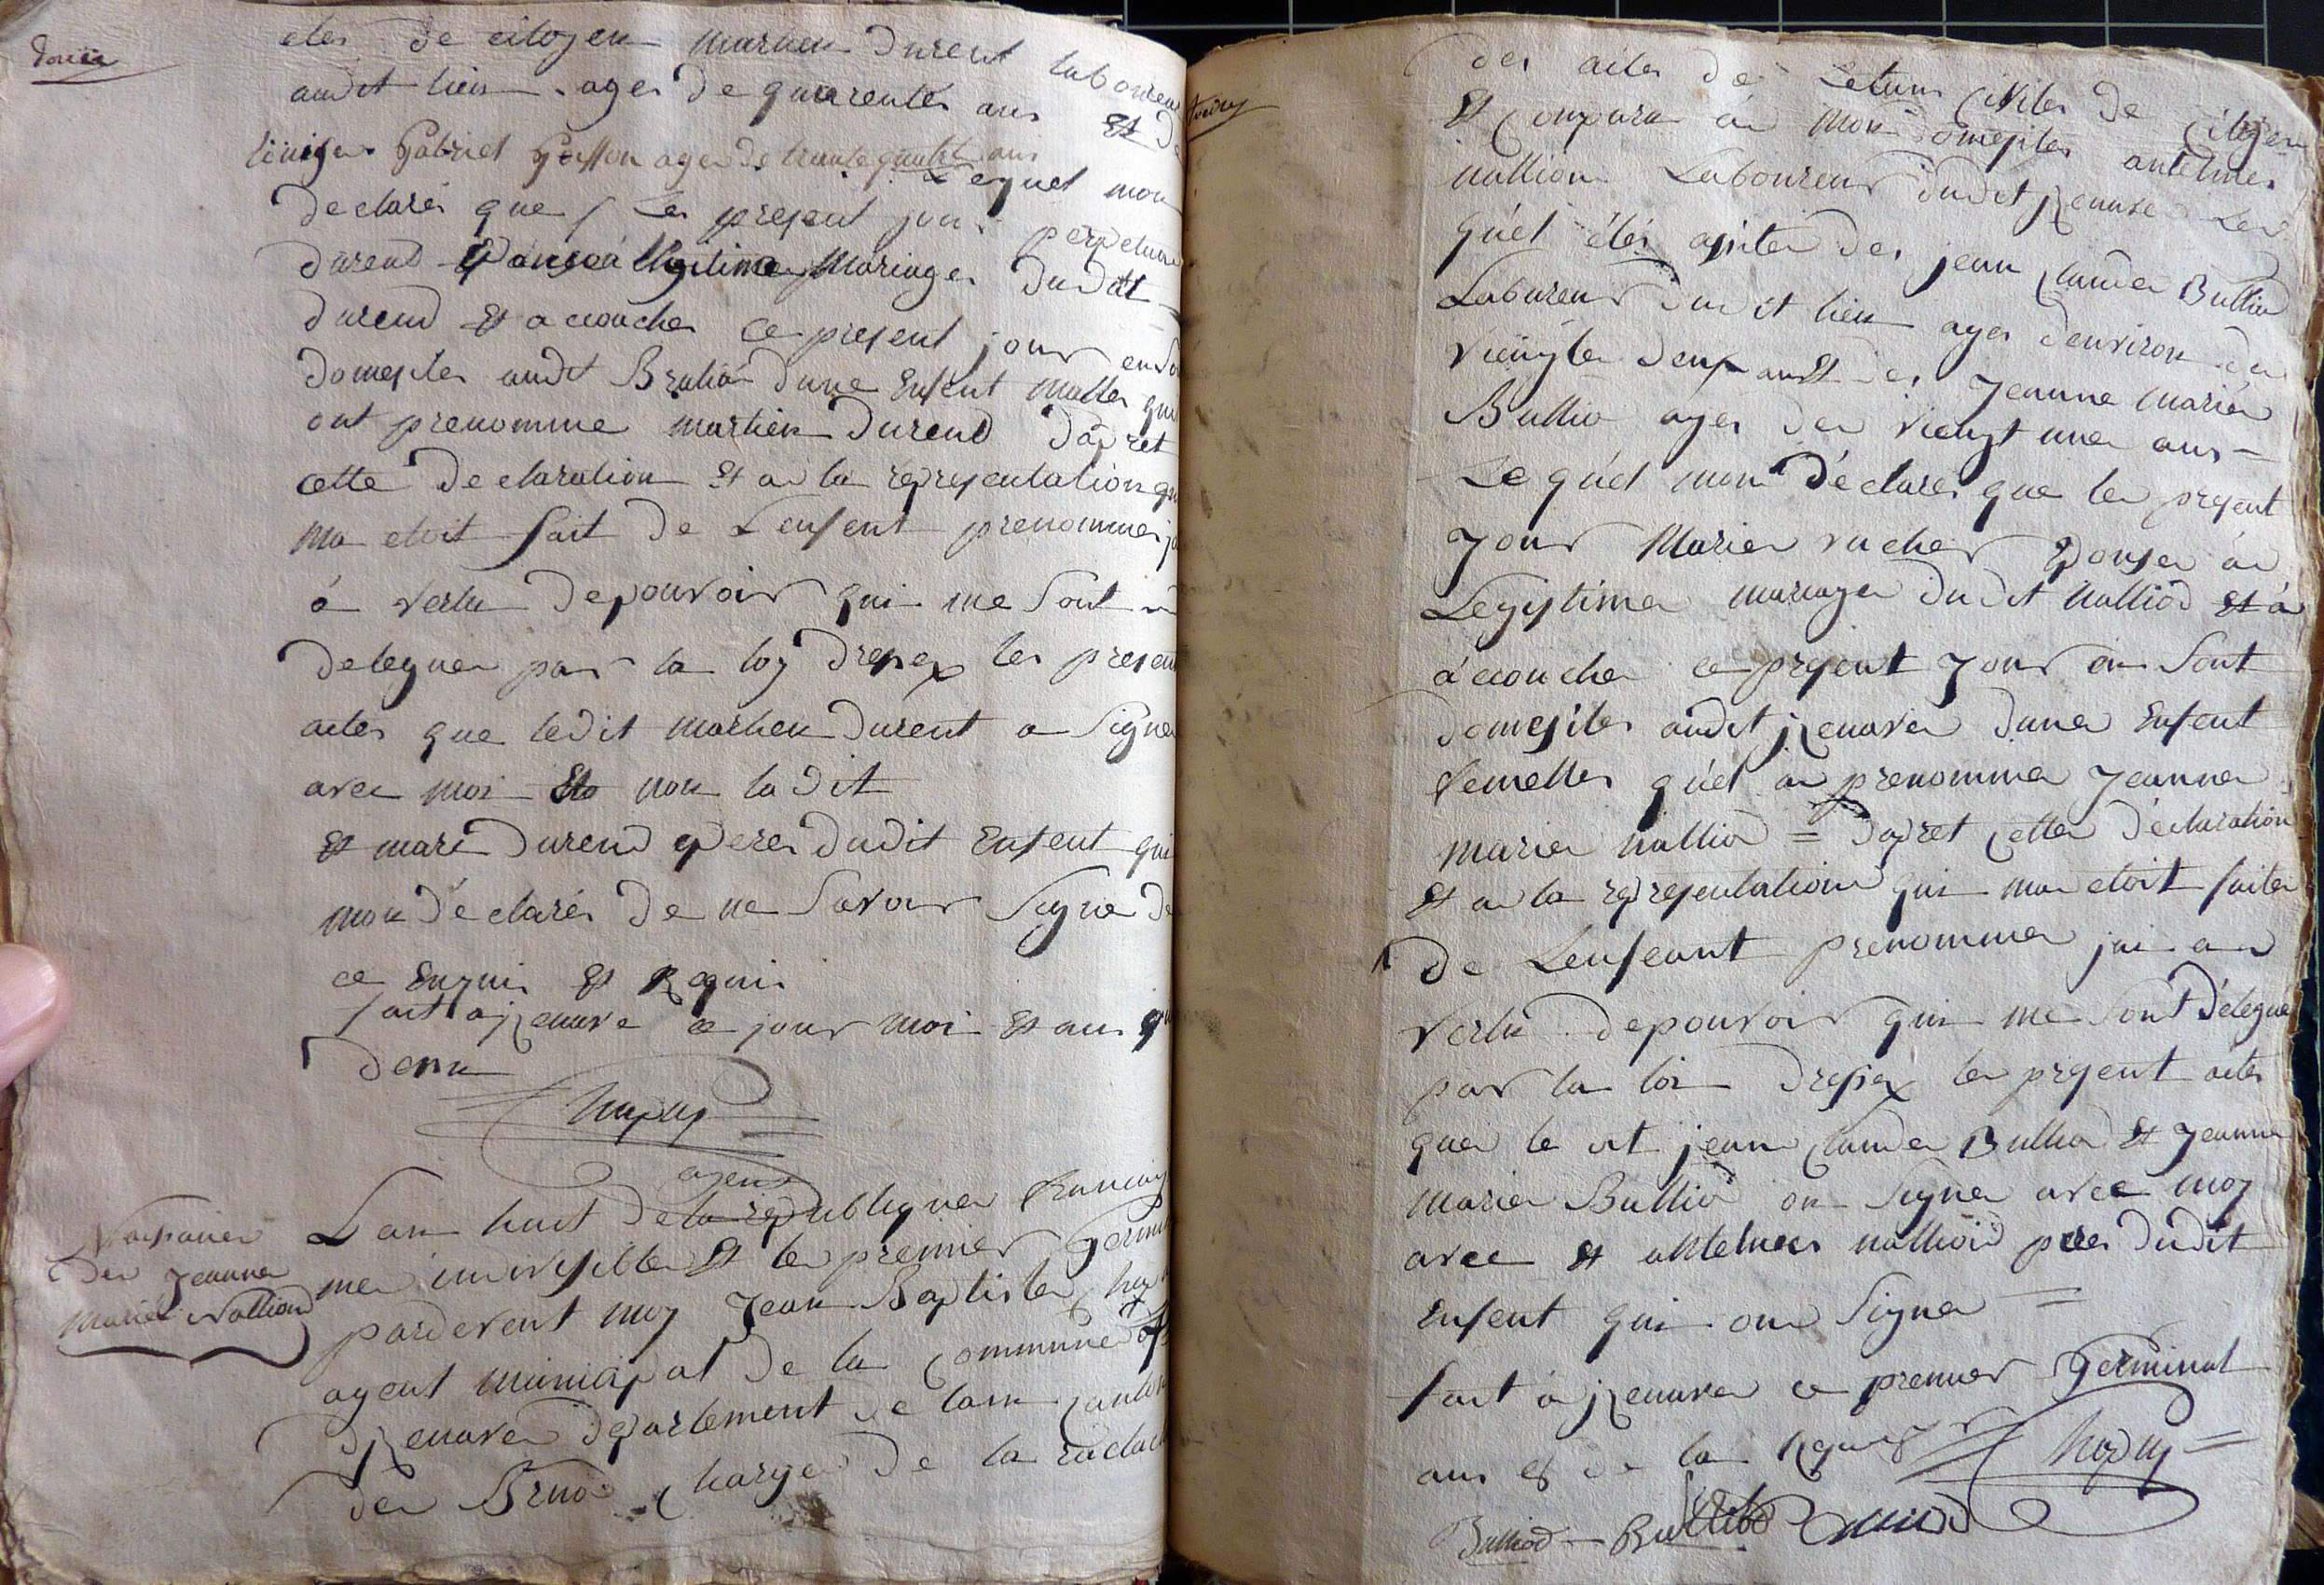 etes de citoyen marieu Durent laboureur
audit lieu ages de quarentes ans Et de
Gabriel ages de trante quatre ans
Lequel mon
declares que Les present jour
durend Epouse á legitime Mariages dudit
durend Et accouches ce present jour en
domesiles audit d'une Enfent malles qui
ont prenomme marlieu Durend Dápret
cette Declaration Et a la representation qui
ma etoit fait de Lenfent prenommes
á vertu depouvoir qui me sont
deleguea par la loy dresex les present
actes que ledit marlieu durent a signe
avec moi Et non ladit
Et mari Durend peres dudit Enfent qui
mon déclarés de ne savoir signe de
ce Enquis Et Requis
fait a jzenave ce jour moi Et ans que
denu
Chapuy
agent
Naisance
den Jeanne
Marie Nalliond
Lan huit de la republiquea francois
mea indivisiblea Et lea premier germinal
pardevent moy Jean Baptistea
agent municipal de la commune
djzenavea departement de lain canton
dea Brenod Charge de la
des actes de Letum civiles de citoyen
Et compara au mon domesiles antelmes
nalliond Laboureur dudit jzenave Le
quél étés asistes des jean claudea Bulliod
Laboureur dudit lieu ages denviron de
viengtea deux ans Et des Jeanne mariea
Bulliod ages dea viengt unea ans
Le quél mon déclares que lea present
Jour Mariea vuchea Epousea au
Legistimea mariagea dudit nalliod Et á
áccouchea ce present Jour an sont
domesiles audit jzenavea dunea Enfent
femelles quél a prenommea Jeannea
mariea nalliod = dapret cettea déclaration
Et a la representation qui ma etoit faites
de Lenfeant prenommea jai a
vertu depouvoir qui me sont délegue
par la loi dresex lea present actes
quea le dit jean claudea Bulliod Et Jeanne
mariea Bulliod on signea avec moy
avec Et antelmes nalliod peres dudit
Enfent qui on signea =
fait á jzenavea ce premier germinal
ans 8 de la
Chapuy
Bulliod Bulliod